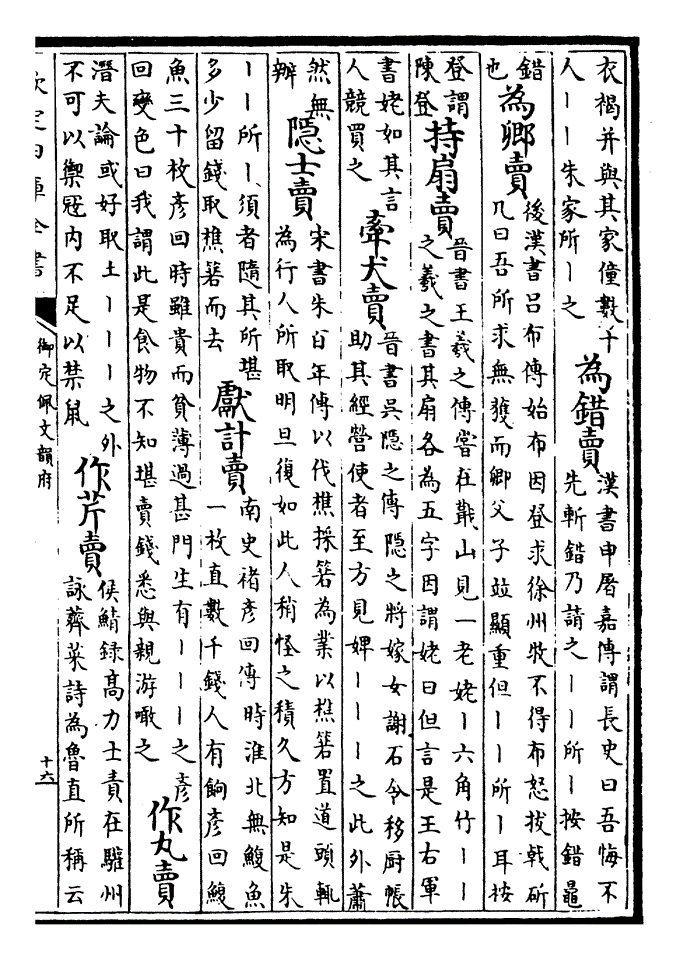 衣褐并與其家僮數千
人丨丨朱家所丨之
為錯賣
漢書申屠嘉傳謂長史曰吾悔不
先斬錯乃請之丨丨所丨按錯鼂
錯
也
為卿賣
後漢書吕布傳始布因登求徐州牧不得布怒拔戟斫
几曰吾所求無獲而卿父子竝顯重但丨丨所丨耳按
登謂
陳登
持扇賣
晉書王羲之傳嘗在蕺山見一老姥丨六角竹丨丨
之羲之書其扇各為五字因謂姥曰但言是王右軍
書姥如其言
人競買之
牽犬賣
晉書吳隱之傳隱之將嫁女謝石令移厨帳
助其經營使者至方見婢丨丨丨之此外蕭
然無
辦
隱士賣
宋書朱百年傳以伐樵採箬為業以樵箬置道頭輒
為行人所取明旦復如此人稍怪之積久方知是朱
丨丨所丨須者隨其所堪
多少留錢取樵箬而去
獻計賣
南史褚彥回傳時淮北無鰒魚
一枚直數千錢人有餉彥回鰒
魚三十枚彥回時雖貴而貧薄過甚門生有丨丨丨之彥
回變色曰我謂此是食物不知堪賣錢悉與親游噉之
作丸賣
潛夫論或好取土丨丨丨之外
不可以禦冦内不足以禁鼠
作芹賣
侯鯖録高力士責在驩州
詠薺菜詩為魯直所稱云
欽定四庫全書
御定佩文韻府
十六